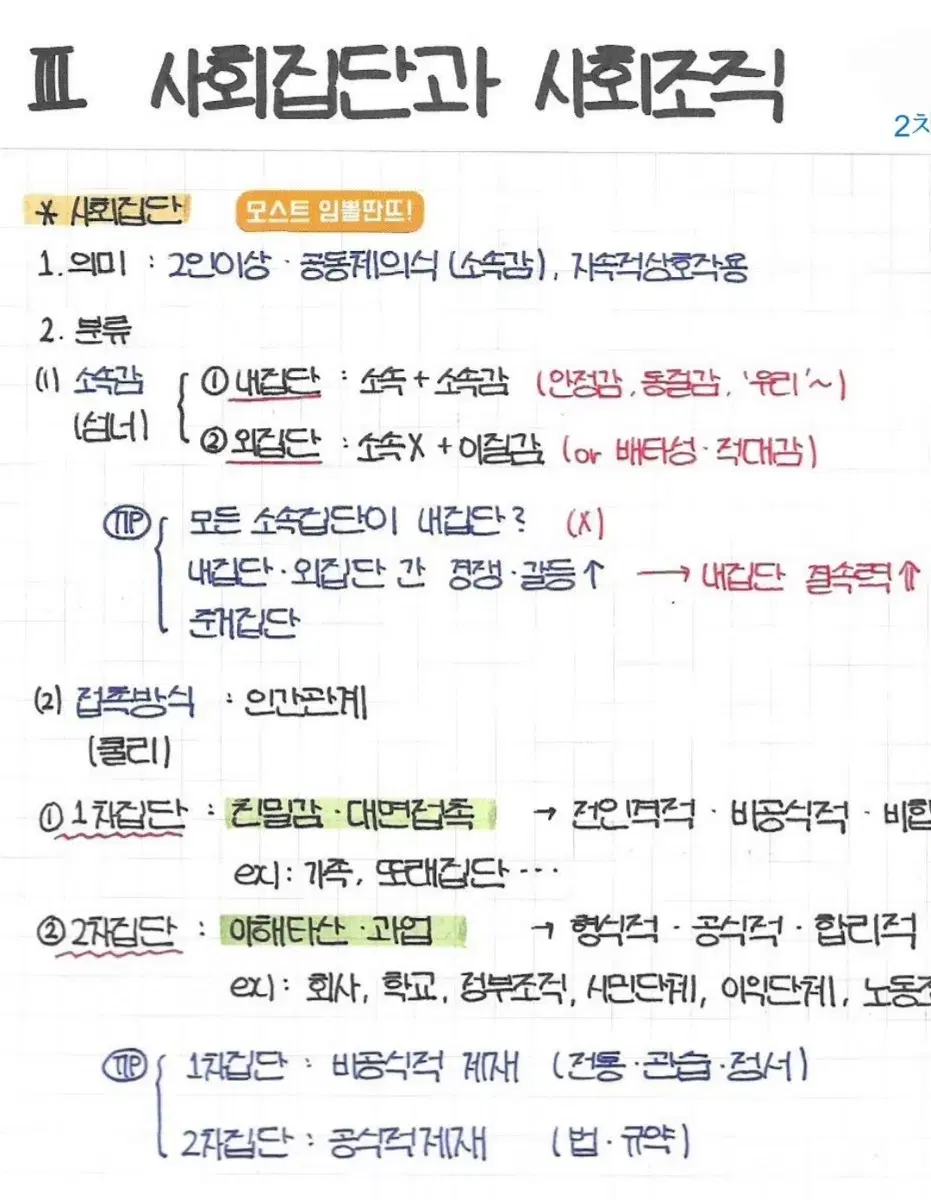 Ⅲ 사회집단과 사회조직
2차
* 사회집단 모스트 임뽈딴뜨!
1. 의미 : 2인이상 · 공동체의식 (소속감), 지속적상호작용
2. 분류
(1) 소속감 ① 내집단 : 소속 + 소속감 (안정감, 동질감, '우리'~)
(섬너) ② 외집단 : 소속X + 이질감 (or 배타성·적대감)
TIP 모든 소속집단이 내집단? (X)
내집단·외집단 간 경쟁·갈등↑ → 내집단 결속력⇑
준거집단
(2) 접촉방식 : 인간관계
(쿨리)
① 1차집단 : 친밀감·대면접촉 → 전인격적 · 비공식적 · 비합
ex) : 가족, 또래집단…
② 2차집단 : 이해타산·과업 → 형식적 · 공식적 · 합리적
ex) : 회사, 학교, 정부조직, 시민단체, 이익단체, 노동조
TIP 1차집단 : 비공식적 제재 (전통·관습·정서)
2차집단 : 공식적제재 (법·규약)